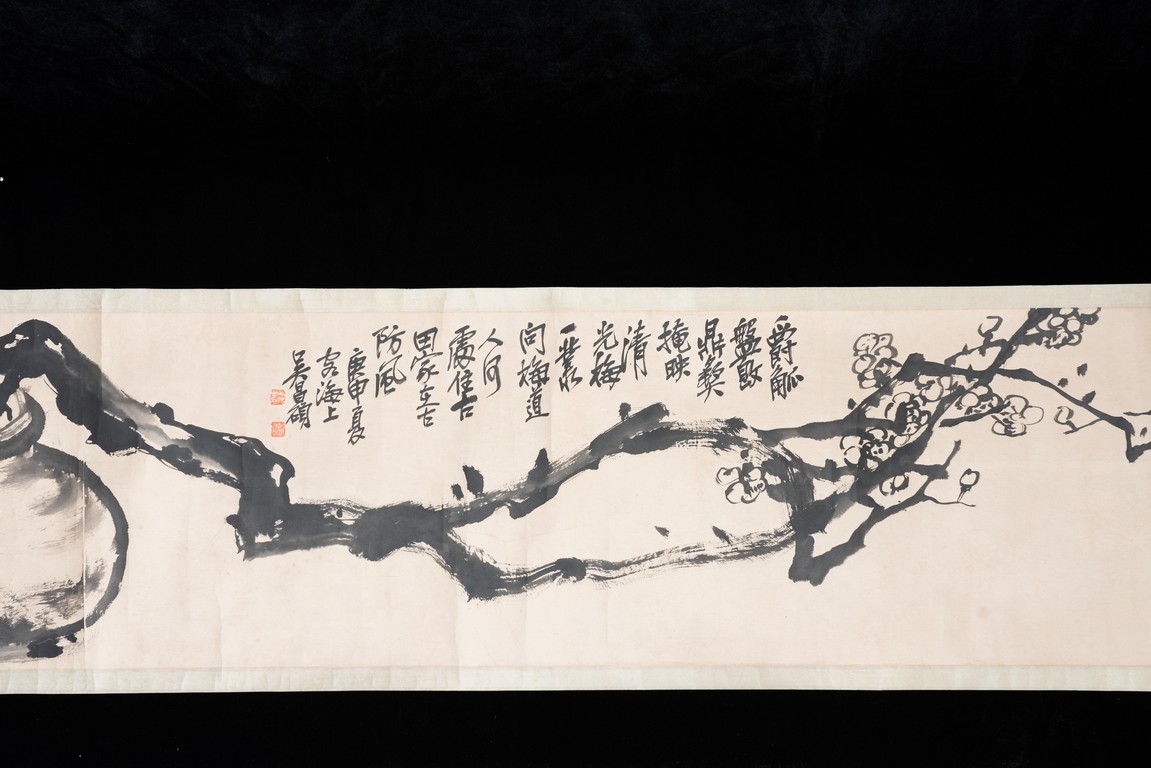 爵觚
盤敦
鼎彝
掩映
清
光梅
一叢
問梅道
人何
處住古
田家在古
防風
庚申夏
客海上
吳昌碩